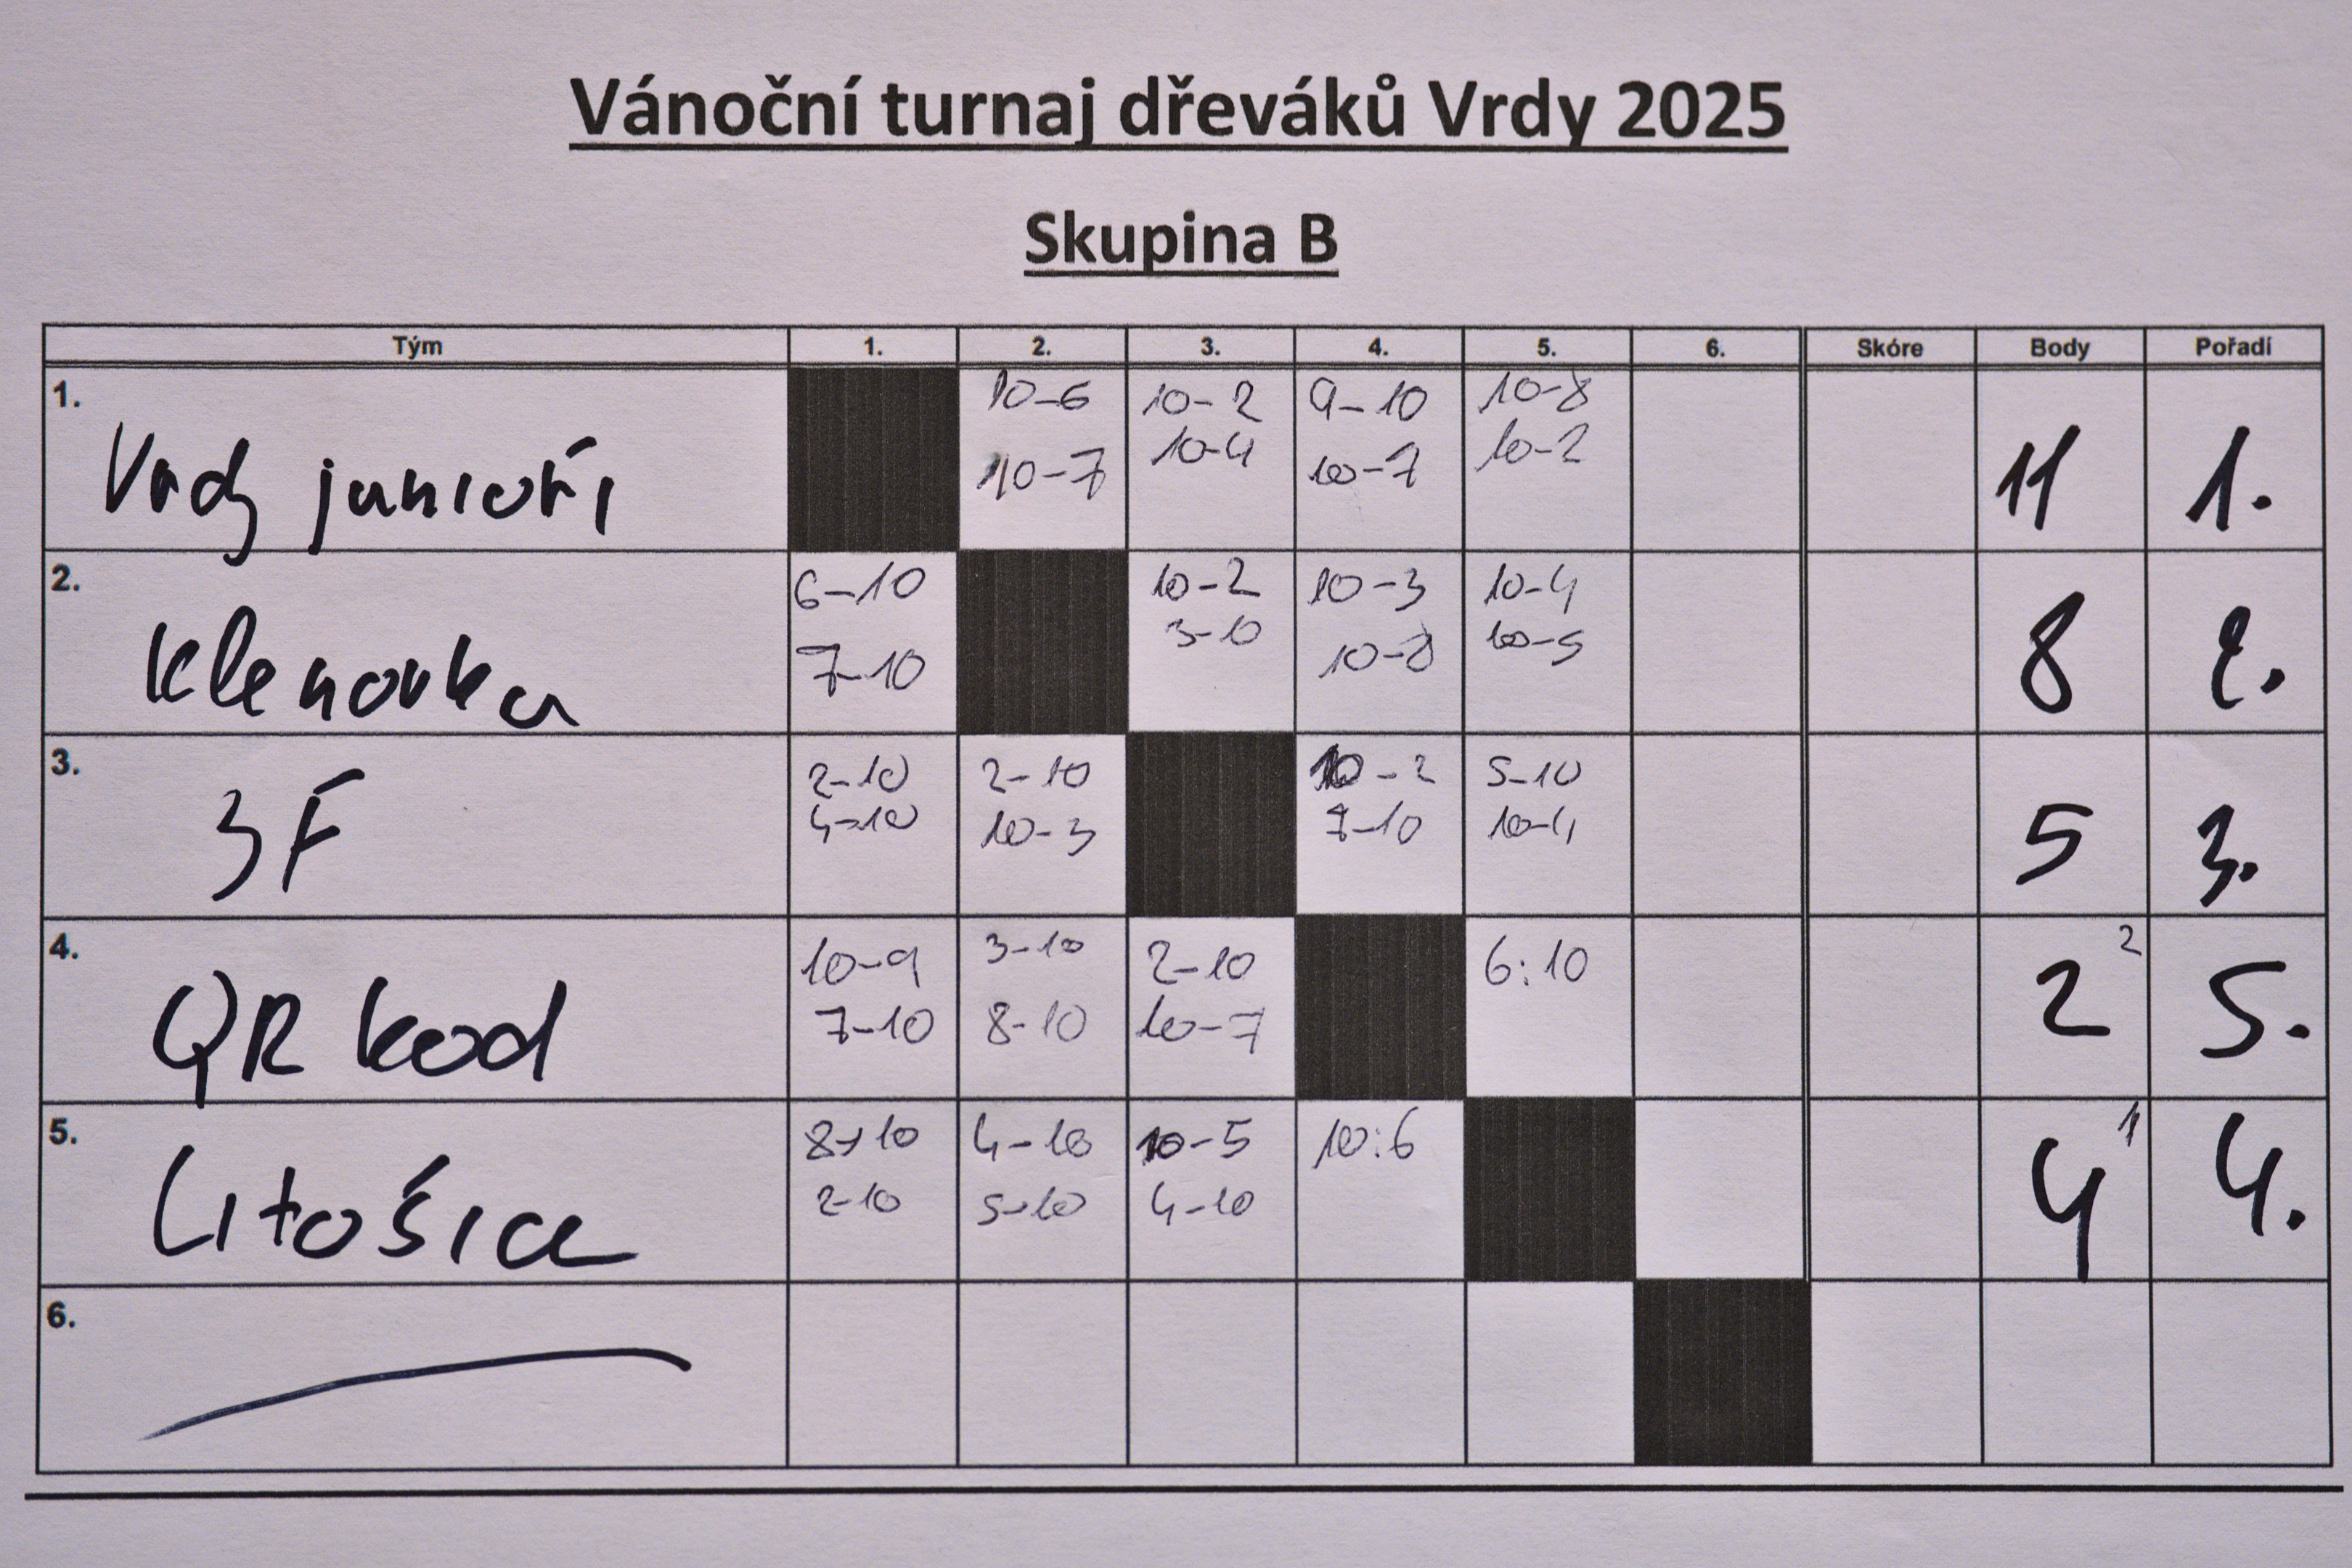 Vánoční turnaj dřeváků Vrdy 2025
Skupina B
Tým 1. 2. 3. 4. 5. 6. Skóre Body Pořadí
1. Vrdy junioři 10-6 10-2 9-10 10-8 11 1.
10-7 10-4 10-7 10-2
2. Klenovka 6-10 10-2 10-3 10-4 8 2.
7-10 3-10 10-8 10-5
3. 3F 2-10 2-10 10-2 5-10 5 3.
4-10 10-3 7-10 10-4
4. QR kod 10-9 3-10 2-10 6:10 2 2 5.
7-10 8-10 10-7
5. Litošice 8-10 4-10 10-5 10:6 4 1 4.
2-10 5-10 4-10
6.